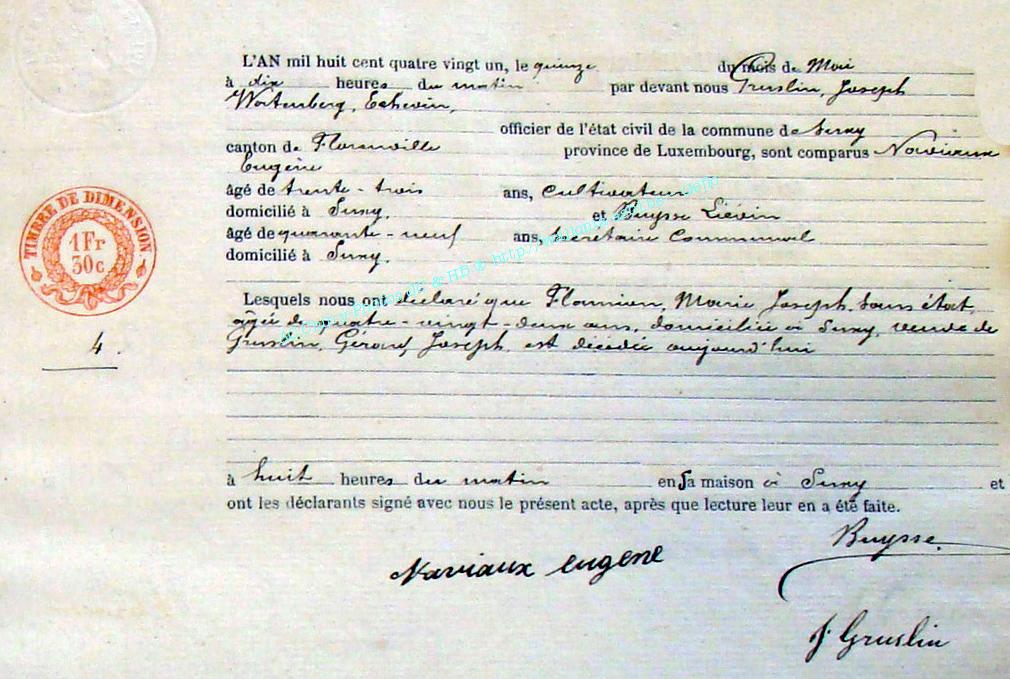 L'AN mil huit cent quatre vingt un, le quinze du mois de Mai
à dix heures du matin par devant nous Gruslin, Joseph
Echevin,
officier de l'état civil de la commune de Suxy
canton de Florenville province de Luxembourg, sont comparus Naviaux
Eugène
âgé de trente-trois ans, cultivateur
domicilié à Suxy, et Buysse Liévin
âgé de quarante-neuf ans, secrétaire communal
domicilié à Suxy,
Lesquels nous ont déclaré que Flamion, Marie Joseph, sans état,
âgée de quatre-vingt-deux ans, domiciliée à Suxy, veuve de
Gruslin, Gérard Joseph, est décédée aujourd'hui
à huit heures du matin en sa maison à Suxy et
ont les déclarants signé avec nous le présent acte, après que lecture leur en a été faite.
Buysse
Naviaux eugène
J. Gruslin
TIMBRE DE DIMENSION
1 Fr
30 c
4.